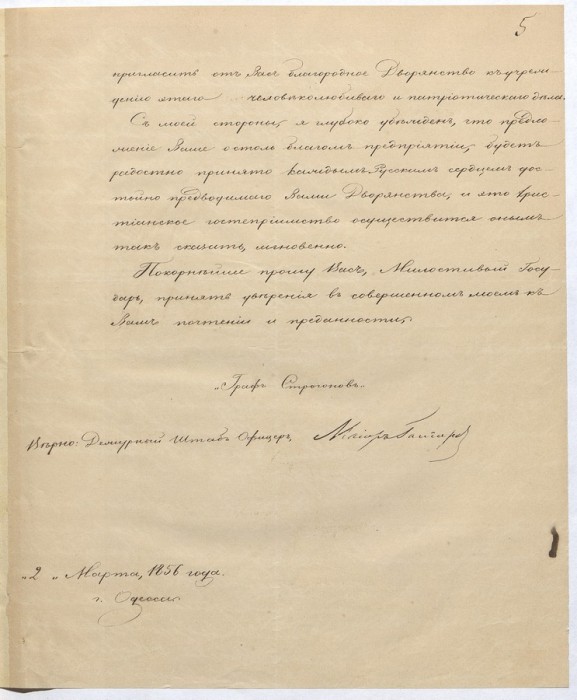 5
пригласить отъ Васъ благородное Дворянство къ учреж-
денію этаго человѣколюбиваго и патріотическаго дѣла.
Съ моей стороны, я глубоко убѣжденъ, что предло-
женіе Ваше о столь благомъ предпріятіи, будетъ
радостно принято каждымъ Русскимъ сердцемъ дос-
тойно предводимаго Вами Дворянства, и это Хрис-
тіанское гостепріимство осуществится онымъ
такъ сказать, мгновенно.
Покорнѣйше прошу Васъ, Милостивый Госу-
дарь, принять увѣренія въ совершенномъ моемъ къ
Вамъ почтеніи и преданности.
„Графъ Строгоновъ"
Вѣрно: Дежурный Штабъ Офицеръ, Маіоръ
„2 „ Марта, 1856 года.
г. Одесса.